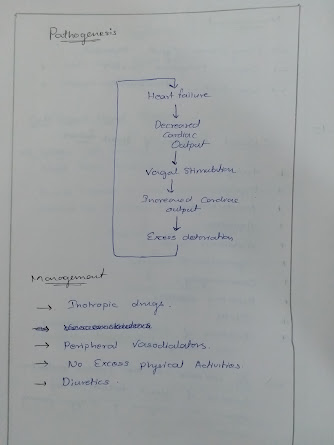 Pathogenesis
Heart failure
Decreased
Cardiac
Output
Vagal Stimulation
Increased Cardiac
output
Excess detorration
Management
→ Inotropic drugs.
→ Peripheral Vasodialators.
→ No Excess physical Activities
→ Diuretics.